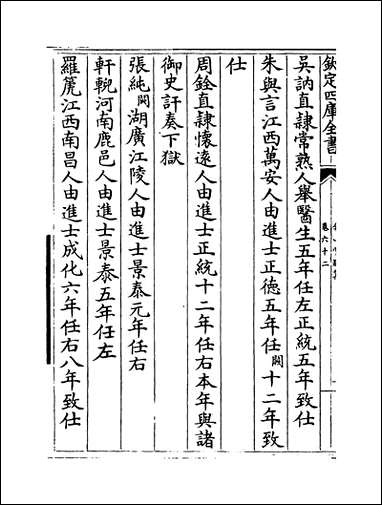 欽定四庫全書
卷六十二
吳訥直隷常熟人舉醫生五年任左正統五年致仕
朱與言江西萬安人由進士正德五年任闕十二年致
仕
周銓直隷懷遠人由進士正統十二年任右本年與諸
御史訐奏下獄
張純闕湖廣江陵人由進士景泰元年任右
軒輗河南鹿邑人由進士景泰五年任左
羅篪江西南昌人由進士成化六年任右八年致仕